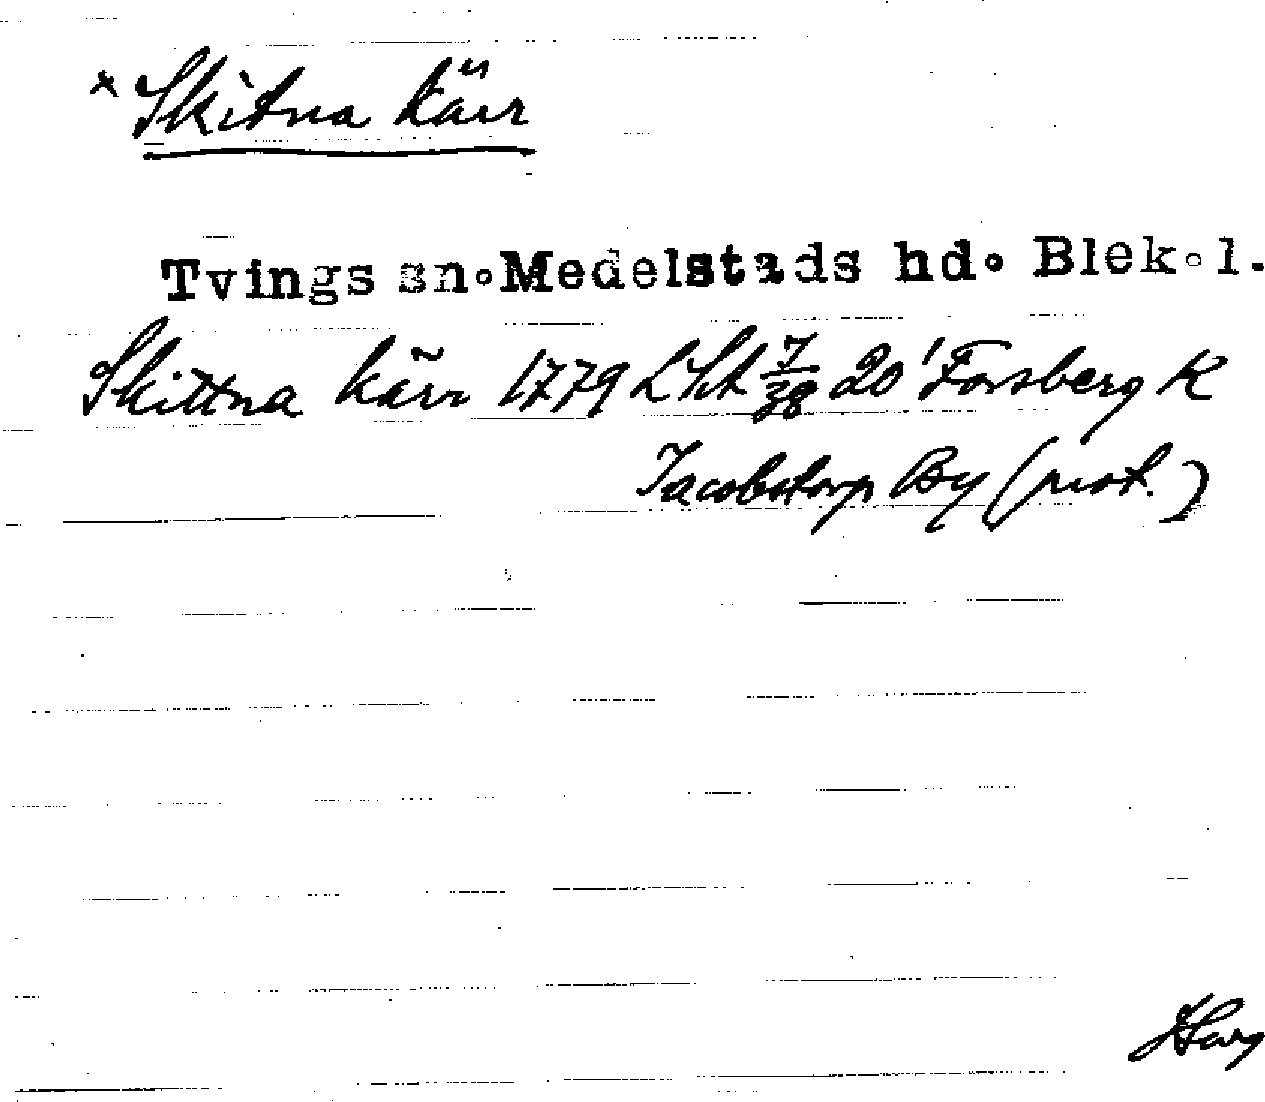 × Skitna kärr
Tvings sn. Medelstads hd. Blek. l.
Skittna kärr 1779 LSA 7/38 20 Forsberg K
Jacobstorp By (prot.)